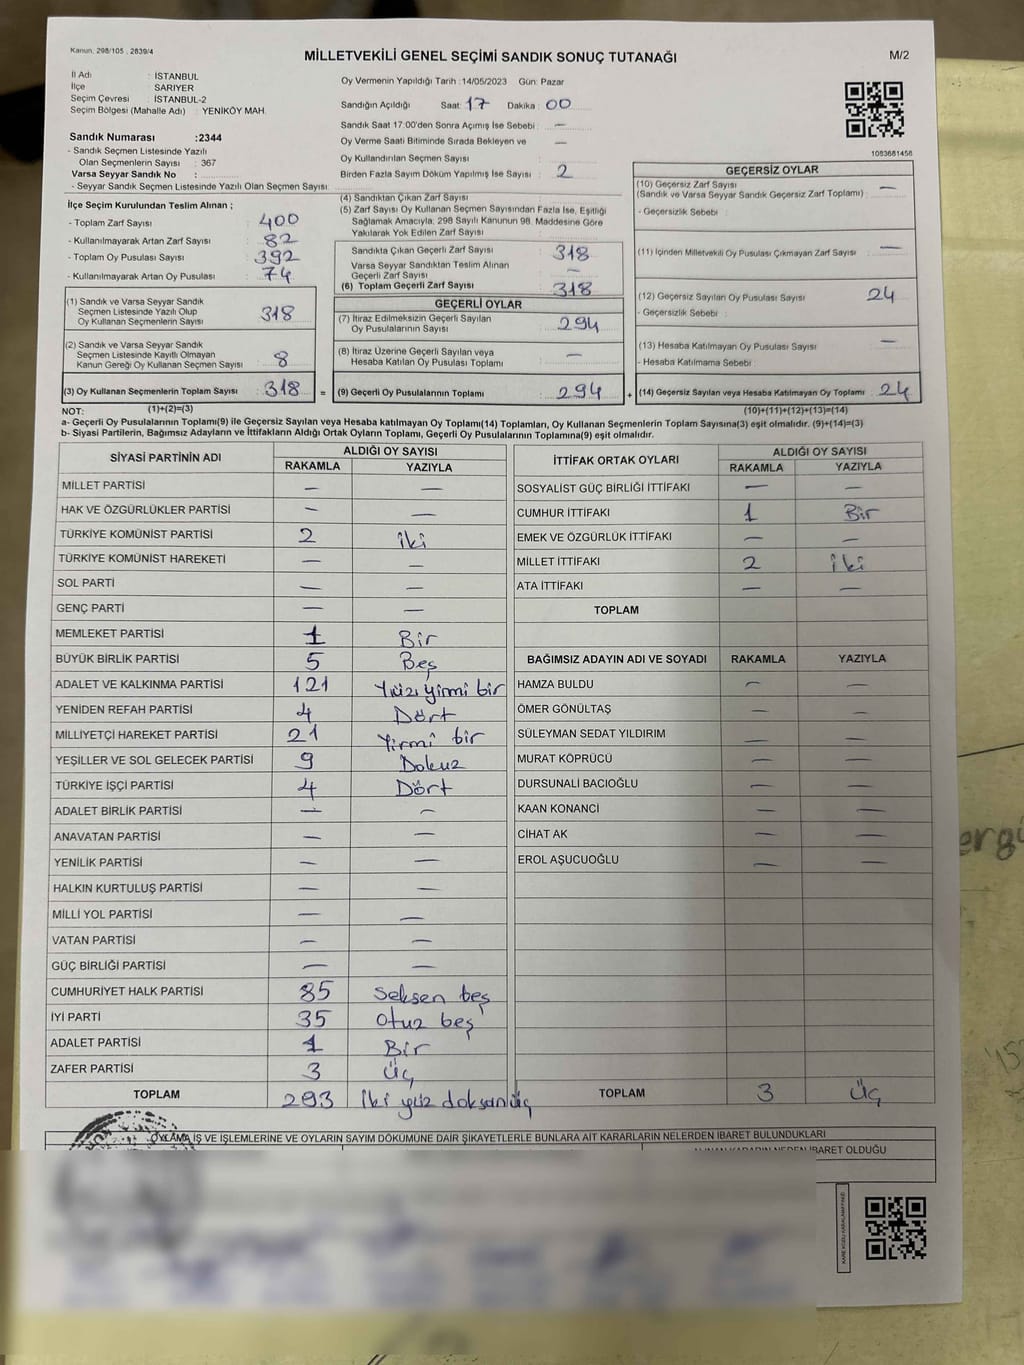 Kanun. 298/105 , 2839/4
MİLLETVEKİLİ GENEL SEÇİMİ SANDIK SONUÇ TUTANAĞI
M/2
İl Adı : İSTANBUL
İlçe : SARIYER
Seçim Çevresi : İSTANBUL-2
Seçim Bölgesi (Mahalle Adı) : YENİKÖY MAH.
Sandık Numarası :2344
- Sandık Seçmen Listesinde Yazılı
Olan Seçmenlerin Sayısı : 367
Varsa Seyyar Sandık No :
- Seyyar Sandık Seçmen Listesinde Yazılı Olan Seçmen Sayısı:
Oy Vermenin Yapıldığı Tarih :14/05/2023 Gün: Pazar
Sandığın Açıldığı Saat: 17 Dakika : 00
Sandık Saat 17:00'den Sonra Açımış İse Sebebi : —
Oy Verme Saati Bitiminde Sırada Bekleyen ve —
Oy Kullandırılan Seçmen Sayısı
Birden Fazla Sayım Döküm Yapılmış İse Sayısı : 2
1083681458
İlçe Seçim Kurulundan Teslim Alınan ;
- Toplam Zarf Sayısı : 400
- Kullanılmayarak Artan Zarf Sayısı : 82
- Toplam Oy Pusulası Sayısı : 392
- Kullanılmayarak Artan Oy Pusulası : 74
(1) Sandık ve Varsa Seyyar Sandık
Seçmen Listesinde Yazılı Olup
Oy Kullanan Seçmenlerin Sayısı : 318
(2) Sandık ve Varsa Seyyar Sandık
Seçmen Listesinde Kayıtlı Olmayan
Kanun Gereği Oy Kullanan Seçmen Sayısı : 8
(3) Oy Kullanan Seçmenlerin Toplam Sayısı : 318
(4) Sandıktan Çıkan Zarf Sayısı
(5) Zarf Sayısı Oy Kullanan Seçmen Sayısından Fazla İse, Eşitliği
Sağlamak Amacıyla, 298 Sayılı Kanunun 98. Maddesine Göre
Yakılarak Yok Edilen Zarf Sayısı :
Sandıkta Çıkan Geçerli Zarf Sayısı : 318
Varsa Seyyar Sandıktan Teslim Alınan
Geçerli Zarf Sayısı : —
(6) Toplam Geçerli Zarf Sayısı : 318
GEÇERLİ OYLAR
(7) İtiraz Edilmeksizin Geçerli Sayılan
Oy Pusulalarının Sayısı : 294
(8) İtiraz Üzerine Geçerli Sayılan veya
Hesaba Katılan Oy Pusulası Toplamı : —
= (9) Geçerli Oy Pusulalarının Toplamı : 294
GEÇERSİZ OYLAR
(10) Geçersiz Zarf Sayısı
(Sandık ve Varsa Seyyar Sandık Geçersiz Zarf Toplamı) : —
- Geçersizlik Sebebi :
(11) İçinden Milletvekili Oy Pusulası Çıkmayan Zarf Sayısı : —
(12) Geçersiz Sayılan Oy Pusulası Sayısı : 24
- Geçersizlik Sebebi :
(13) Hesaba Katılmayan Oy Pusulası Sayısı : —
- Hesaba Katılmama Sebebi :
+ (14) Geçersiz Sayılan veya Hesaba Katılmayan Oy Toplamı : 24
NOT: (1)+(2)=(3) (10)+(11)+(12)+(13)=(14)
a- Geçerli Oy Pusulalarının Toplamı(9) ile Geçersiz Sayılan veya Hesaba katılmayan Oy Toplamı(14) Toplamları, Oy Kullanan Seçmenlerin Toplam Sayısına(3) eşit olmalıdır. (9)+(14)=(3)
b- Siyasi Partilerin, Bağımsız Adayların ve İttifakların Aldığı Ortak Oyların Toplamı, Geçerli Oy Pusulalarının Toplamına(9) eşit olmalıdır.
SİYASİ PARTİNİN ADI ALDIĞI OY SAYISI
RAKAMLA YAZIYLA
MİLLET PARTİSİ — —
HAK VE ÖZGÜRLÜKLER PARTİSİ — —
TÜRKİYE KOMÜNİST PARTİSİ 2 iki
TÜRKİYE KOMÜNİST HAREKETİ — —
SOL PARTİ — —
GENÇ PARTİ — —
MEMLEKET PARTİSİ 1 Bir
BÜYÜK BİRLİK PARTİSİ 5 Beş
ADALET VE KALKINMA PARTİSİ 121 Yüzyirmi bir
YENİDEN REFAH PARTİSİ 4 Dört
MİLLİYETÇİ HAREKET PARTİSİ 21 Yirmi bir
YEŞİLLER VE SOL GELECEK PARTİSİ 9 Dokuz
TÜRKİYE İŞÇİ PARTİSİ 4 Dört
ADALET BİRLİK PARTİSİ — —
ANAVATAN PARTİSİ — —
YENİLİK PARTİSİ — —
HALKIN KURTULUŞ PARTİSİ — —
MİLLİ YOL PARTİSİ — —
VATAN PARTİSİ — —
GÜÇ BİRLİĞİ PARTİSİ — —
CUMHURİYET HALK PARTİSİ 85 Seksen beş
İYİ PARTİ 35 Otuz beş
ADALET PARTİSİ 1 Bir
ZAFER PARTİSİ 3 Üç
TOPLAM 293 İki yüz doksanüç
İTTİFAK ORTAK OYLARI ALDIĞI OY SAYISI
RAKAMLA YAZIYLA
SOSYALİST GÜÇ BİRLİĞİ İTTİFAKI — —
CUMHUR İTTİFAKI 1 Bir
EMEK VE ÖZGÜRLÜK İTTİFAKI — —
MİLLET İTTİFAKI 2 İki
ATA İTTİFAKI — —
TOPLAM
BAĞIMSIZ ADAYIN ADI VE SOYADI RAKAMLA YAZIYLA
HAMZA BULDU — —
ÖMER GÖNÜLTAŞ — —
SÜLEYMAN SEDAT YILDIRIM — —
MURAT KÖPRÜCÜ — —
DURSUNALİ BACIOĞLU — —
KAAN KONANCİ — —
CİHAT AK — —
EROL AŞUCUOĞLU — —
TOPLAM 3 Üç
OYLAMA İŞ VE İŞLEMLERİNE VE OYLARIN SAYIM DÖKÜMÜNE DAİR ŞİKAYETLERLE BUNLARA AİT KARARLARIN NELERDEN İBARET BULUNDUKLARI